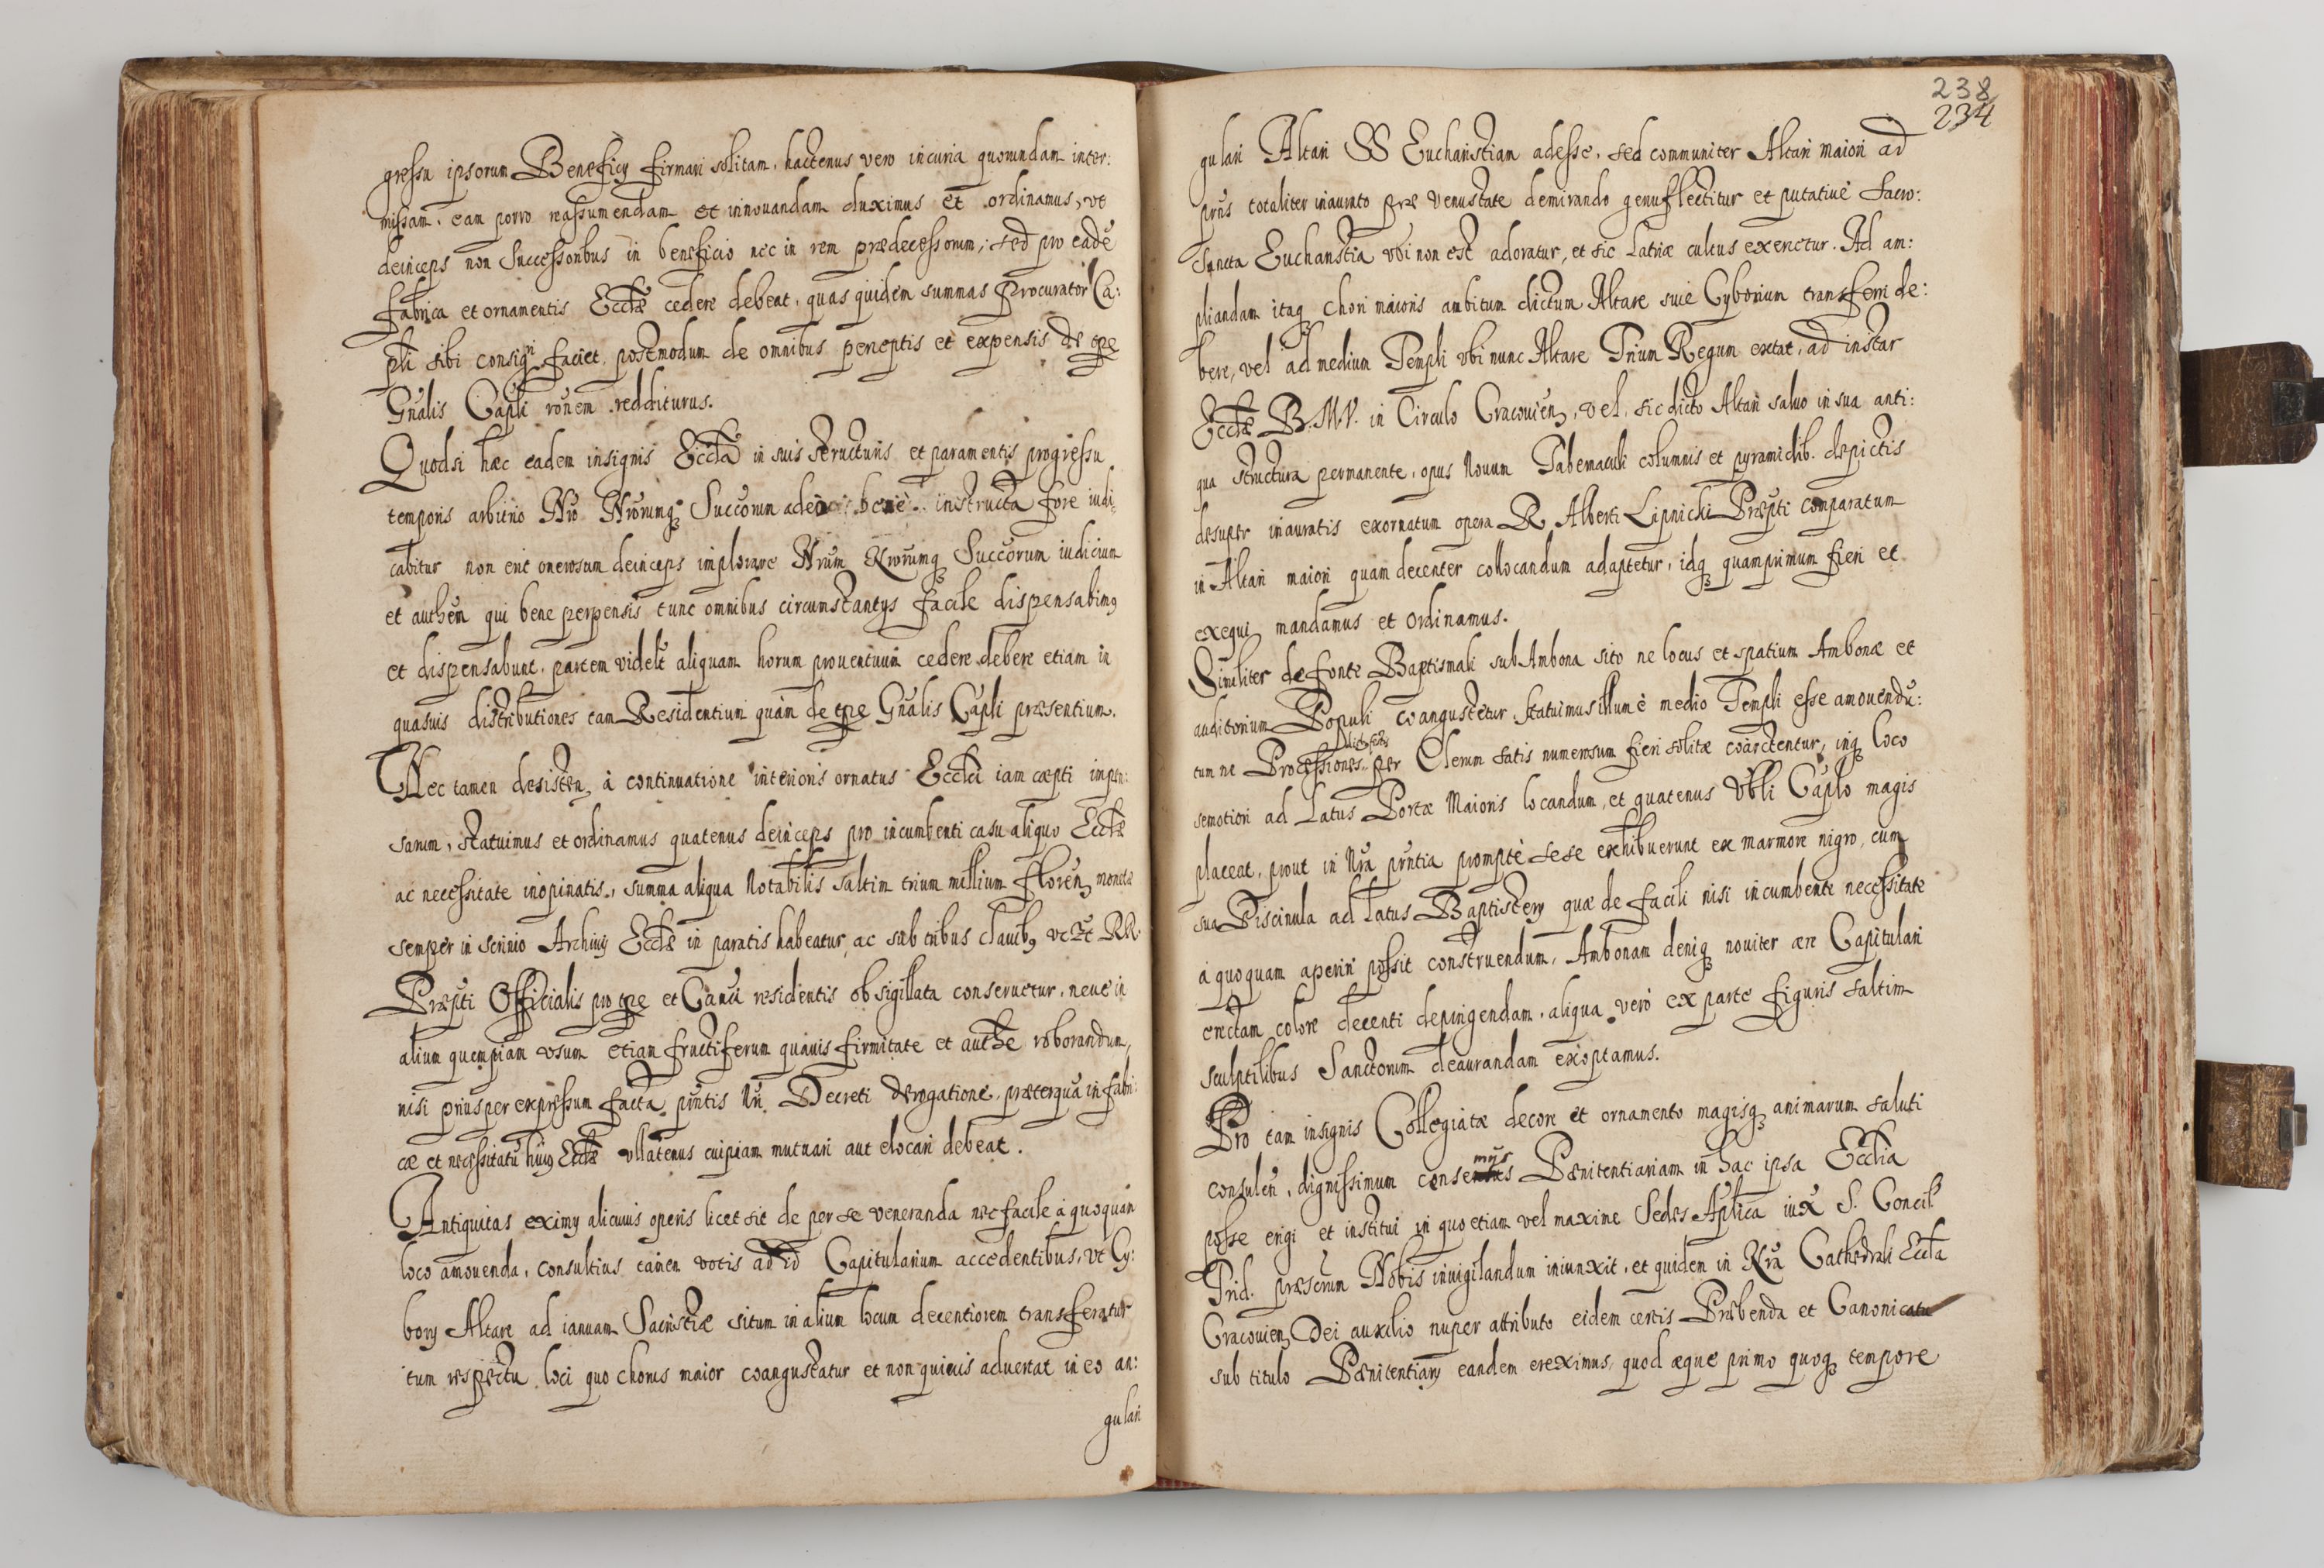 gressu ipsorum Beneficÿ firmari solitam, hactenus vero incuria quorundam inter:
missam, eam porro reassumendam et innouandam duximus et ordinamus, vt
deinceps non Successoribus in beneficio nec in rem prædecessorum, sed pro eadē
fabrica et ornamentis Ecclæ cedere debeat, quas quidem summas Procurator Ca:
pli sibi consigri faciet postmodum de omnibus perceptis et expensis de tpe
Gn̄alis Capli rōnem redditurus.
Quodsi hæc eadem insignis Eccla in suis structuris et paramentis progressu
temporis arbitrio Nr̄o Nr̄orumq Succorum adeo bene instructa fore iudi:
cabitur non erit onerosum deinceps implorare Nr̄um Nr̄orumq Succorum iudicium
et authēm qui bene perpensis tunc omnibus circumstantÿs facile dispensabimq
et dispensabunt, partem videlt aliquam horum prouentuum cedere debere etiam in
quasuis distributiones tam Residentium quam de tpe Gn̄alis Capli præsentium.
Nec tamen desisten à continuatione interioris ornatus Ecclæ iam cæpti impen:
sarum, statuimus et ordinamus quatenus deinceps pro incumbenti casu aliquo Ecclæ
ac necessitate inopinatis, summa aliqua Notabilis saltim trium millium floren monetæ
semper in scrinio Archiuÿ Ecclæ in paratis habeatur, ac sub tribus clauibq RR.
Præpti Officialis pro tpe et Can̄ci residentis obsigillata conseruetur, neue in
alium quempiam vsum etiam fructiferum quauis firmitate et authē roborandum,
nisi prius per expressum facta pn̄tis Nr̄i Decreti derogatione, præterquā in fabri:
cæ et necessitatū huiq Ecclæ vllatenus cuipiam mutuari aut elocari debeat.
Antiquitas eximÿ alicuius operis licet sit de per se veneranda nec facile à quoquam
loco amouenda, consultius tamen votis ad id Capitularium accedentibus, vt Cy:
borÿ Altare ad ianuam Sacristiæ situm in alium locum decentiorem transferatur
tum respectu loci quo chorus maior coangustatur et non quiuis aduertat in eo an:
gulari
238
234
gulari Altari SS Eucharistiam adesse, sed communiter Altari maiori ad
prus totaliter inaurato præ venustate demirando genuflectitur et putatiuè Sacro:
Sancta Eucharistia vbi non est adoratur, et sic Latriæ cultus exercetur. Ad am:
pliandam itaq chori maioris ambitum dictum Altare siue Cyborium transferri de:
bere, vel ad medium Templi vbi nunc Altare Trium Regum extat, ad instar
Ecclæ B. M. V. in Circulo Cracouien, vel, sic dicto Altari saluo in sua anti:
qua structura permanente, opus Nouum Tabernaculi columnis et pyramidib. depictis
desuper inauratis exornatum opera R. Alberti Lipnicki Præpti comparatum
in Altari maiori quam decenter collocandum adaptetur, idq quamprimum fieri et
exequi mandamus et ordinamus.
Similiter de fonte Baptismali sub Ambona sito ne locus et spatium Ambonæ et
auditorium Populi coangustetur, statuimus illum è medio Templi esse amouendū:
tum ne Processiones per Clerum satis numerosum fieri solitæ coarctentur, inq loco
semotiori ad Latus Portæ Maioris locandum, et quatenus Vbli Caplo magis
placeat, prout in Nr̄a pn̄tia promptè sese exhibuerunt ex marmore nigro, cum
sua Piscinula ad latus Baptisterÿ quæ de facili nisi incumbente necessitate
à quoquam aperiri possit construendum, Ambonam deniq nouiter ære Capitulari
erectam colore decenti depingendam, aliqua vero ex parte figuris saltim
sculptilibus Sanctorum deaurandam exoptamus.
Pro tam insignis Collegiatæ decore et ornamento magisq animarum saluti
consulen, dignissimum consemus Pænitentiariam in hac ipsa Ecclia
mijs
posse erigi et institui in quo etiam vel maxime Sedes Aplica iux S. Concil
Trid. præsertim Nobis inuigilandum iniunxit, et quidem in Nr̄a Cathedrali Eccla
Cracouien Dei auxilio nuper attributo eidem certis Præbenda et Canonicatu
sub titulo Pænitentiarÿ eandem ereximus, quod æque primo quoq tempore